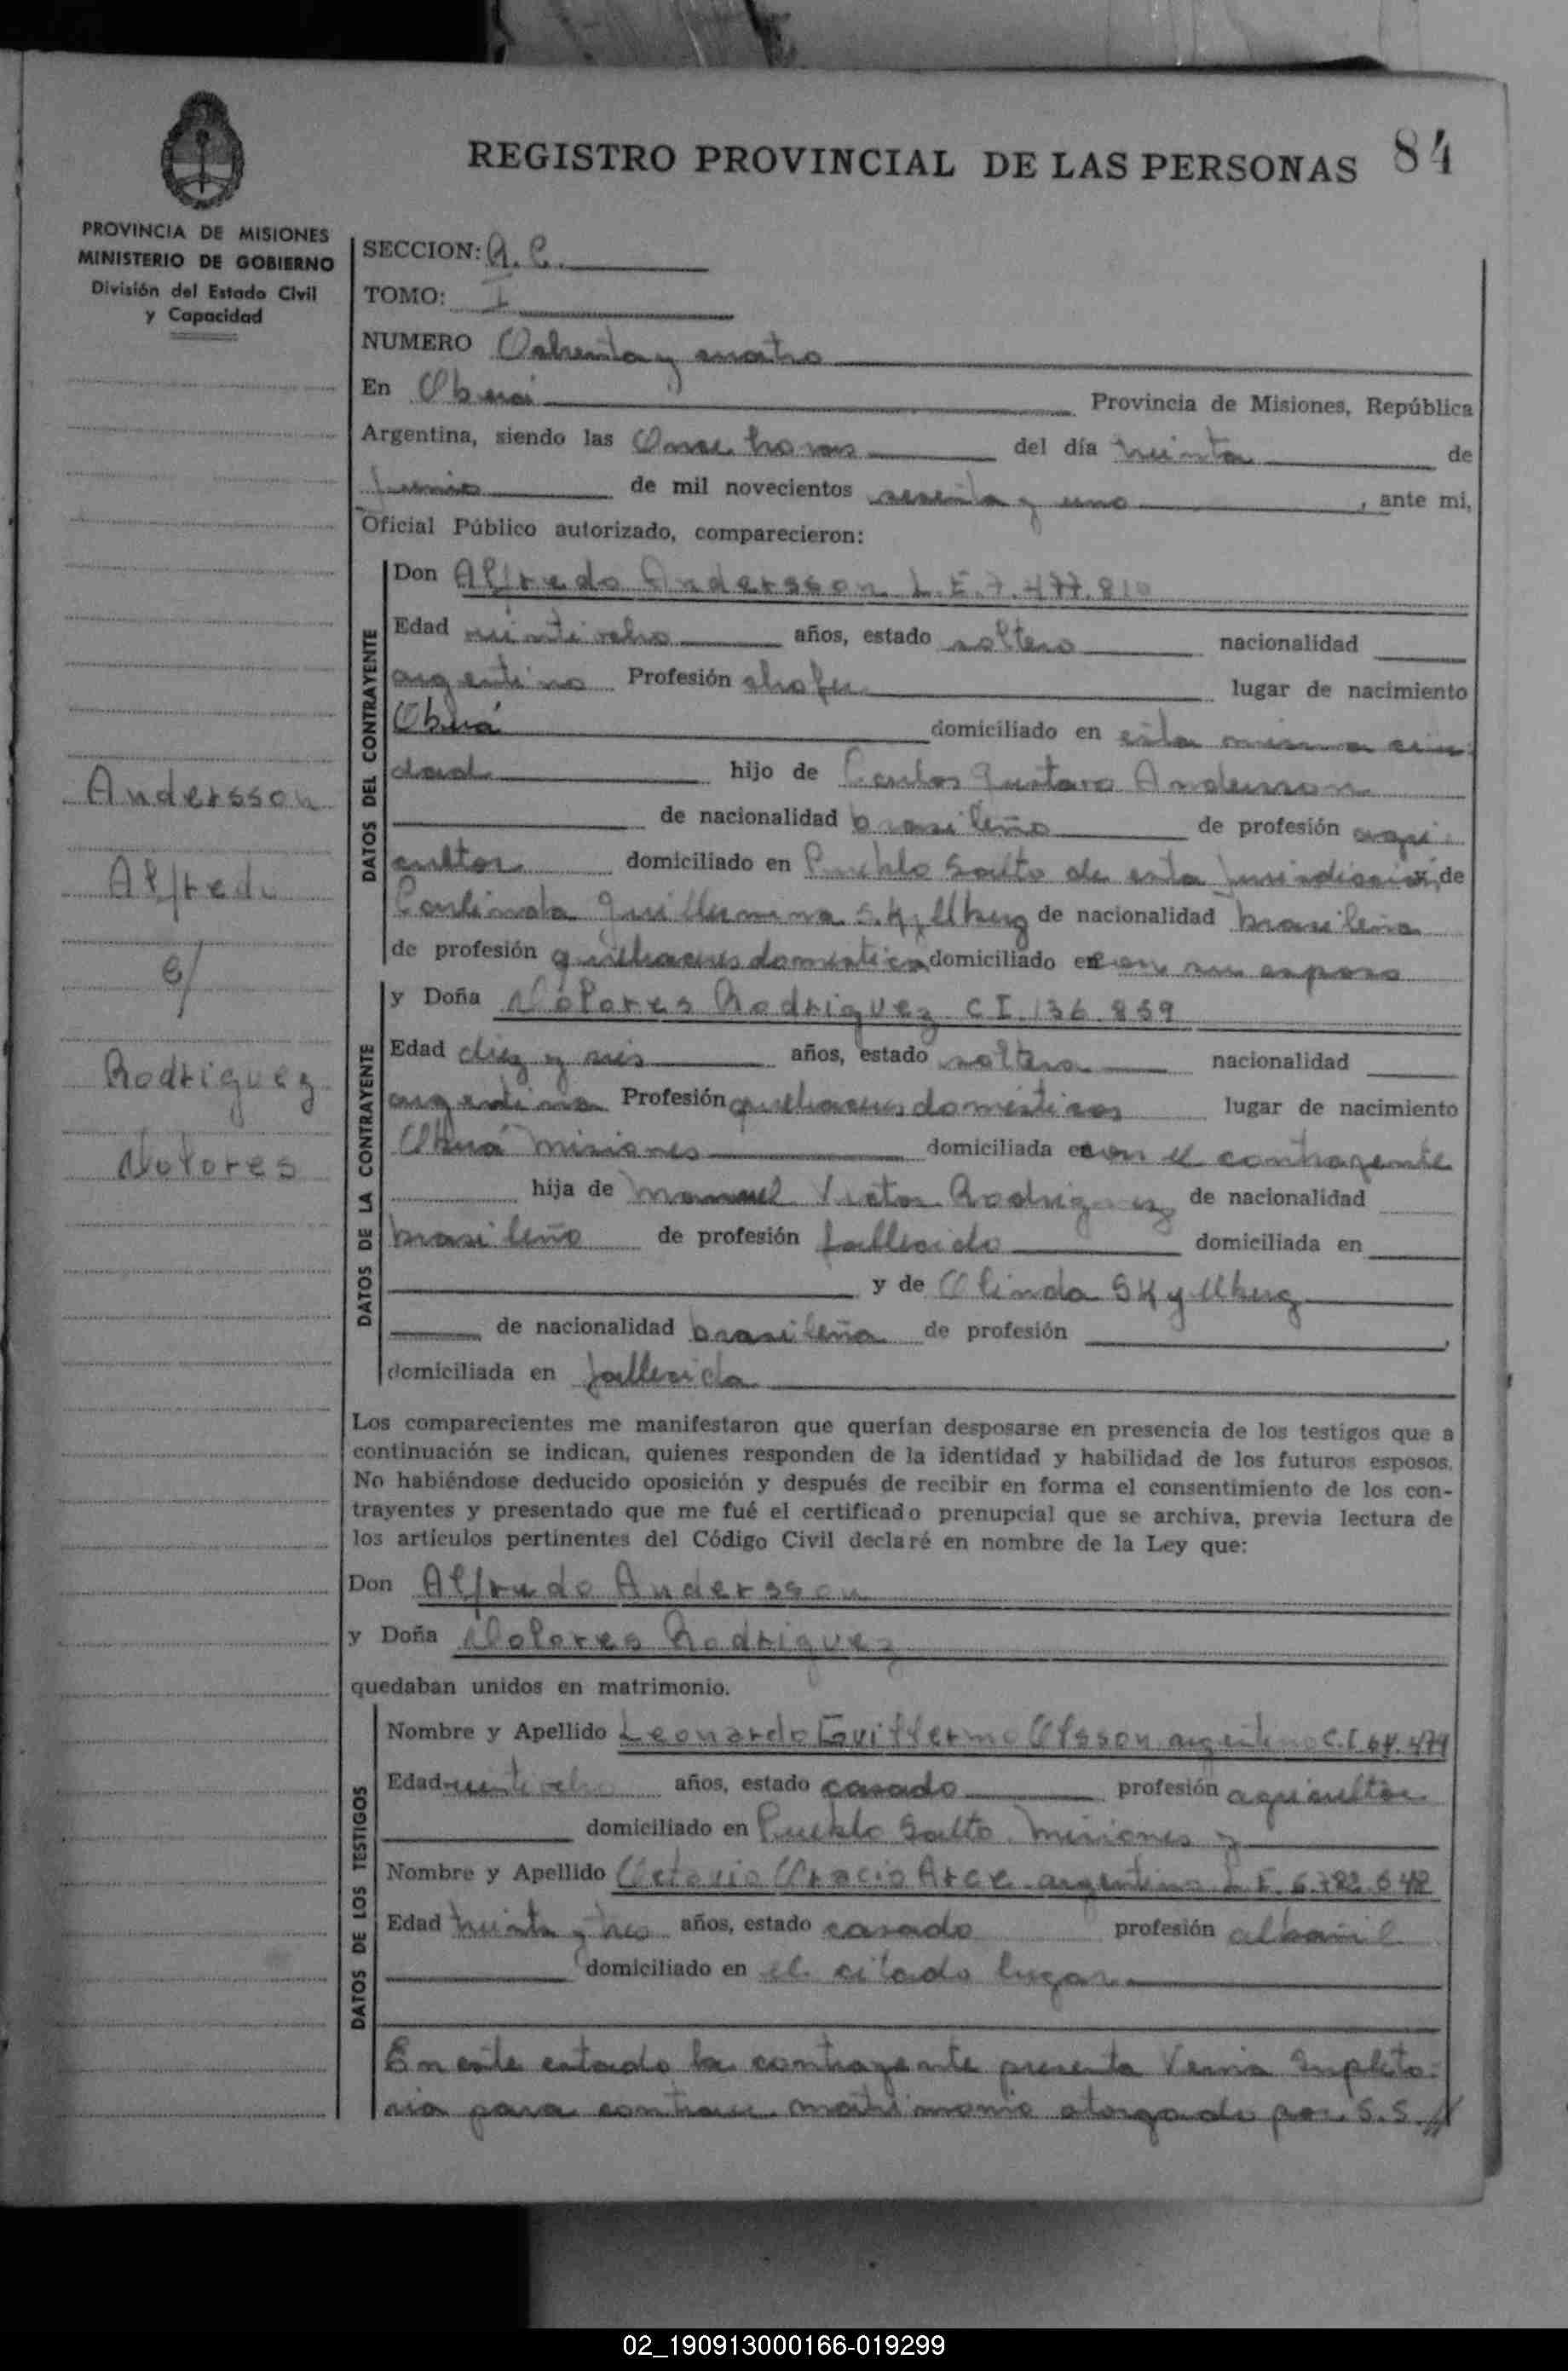 REGISTRO PROVINCIAL DE LAS PERSONAS 84
PROVINCIA DE MISIONES
MINISTERIO DE GOBIERNO
División del Estado Civil
y Capacidad
Andersson
Alfredo
c/
Rodriguez
Dolores
SECCION: A. C.
TOMO: I
NUMERO Ochenta y cuatro
En Oberá Provincia de Misiones, República
Argentina, siendo las Once horas del día treinta de
Junio de mil novecientos sesenta y uno, ante mi,
Oficial Público autorizado, comparecieron:
DATOS DEL CONTRAYENTE
Don Alfredo Andersson L.E. 7.477.810
Edad veintiocho años, estado soltero nacionalidad
argentino Profesión chofer lugar de nacimiento
Oberá domiciliado en esta misma ciu
dad hijo de Carlos Gustavo Andersson
de nacionalidad brasileño de profesión agri
cultor domiciliado en Pueblo Salto de esta Jurisdicción y de
Carlinda Guillermina Skyllberg de nacionalidad brasileña
de profesión quehaceres domésticos domiciliado en con su esposo
DATOS DE LA CONTRAYENTE
y Doña Dolores Rodriguez C.I. 136.859
Edad diez y seis años, estado soltera nacionalidad
argentina Profesión quehaceres domésticos lugar de nacimiento
Oberá Misiones domiciliada en con el contrayente
hija de Manuel Victor Rodriguez de nacionalidad
brasileño de profesión fallecido domiciliada en
y de Olinda Skyllberg
de nacionalidad brasileña de profesión
domiciliada en fallecida
Los comparecientes me manifestaron que querían desposarse en presencia de los testigos que a
continuación se indican, quienes responden de la identidad y habilidad de los futuros esposos.
No habiéndose deducido oposición y después de recibir en forma el consentimiento de los con-
trayentes y presentado que me fué el certificado prenupcial que se archiva, previa lectura de
los artículos pertinentes del Código Civil declaré en nombre de la Ley que:
Don Alfredo Andersson
y Doña Dolores Rodriguez
quedaban unidos en matrimonio.
DATOS DE LOS TESTIGOS
Nombre y Apellido Leonardo Guillermo Olsson argentino C.I. 64.474
Edad veintiocho años, estado casado profesión agricultor
domiciliado en Pueblo Salto Misiones y
Nombre y Apellido Octavio Oracio Arce argentino L.E. 6.782.648
Edad treinta y tres años, estado casado profesión albañil
domiciliado en el citado lugar
En este estado la contrayente presenta Venia Supleto-
ria para contraer matrimonio otorgado por S.S. //
02_190913000166-019299